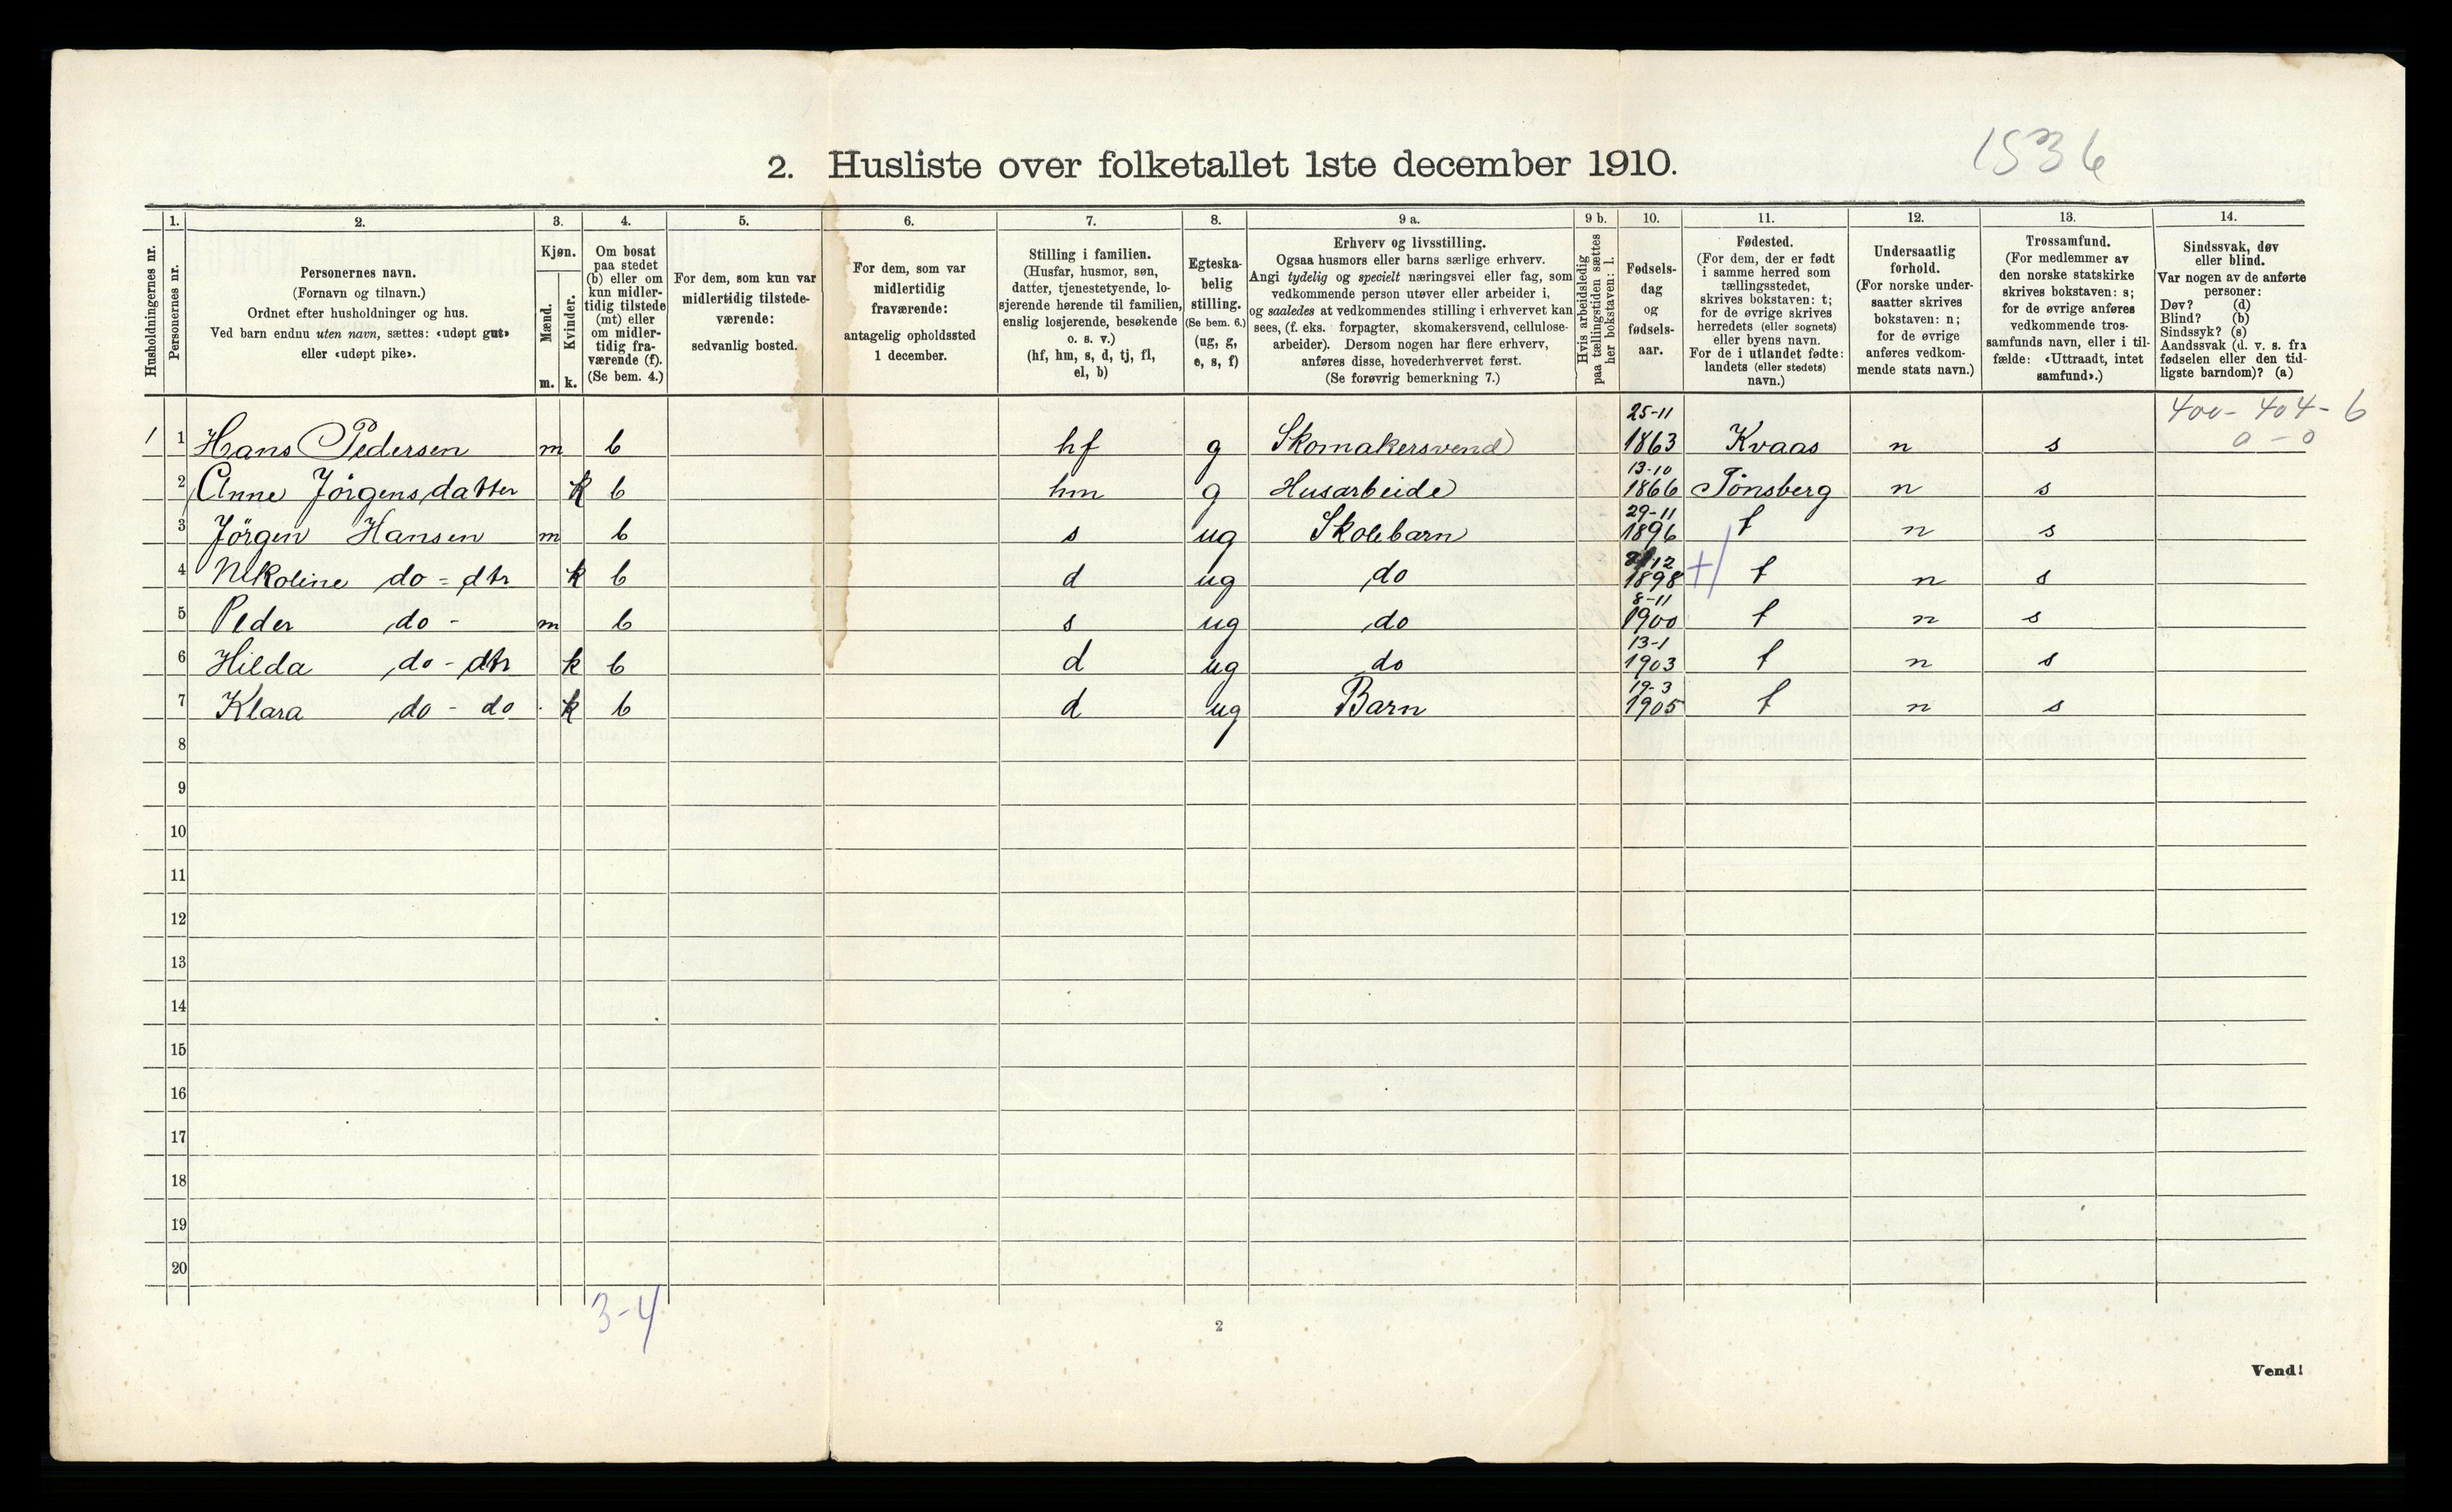 1536
2. Husliste over folketallet 1ste december 1910.
1. 2. 3. 4. 5. 6. 7. 8. 9 a. 9 b. 10. 11. 12. 13. 14.
Husholdningernes nr.
Personernes nr.
Personernes navn.
(Fornavn og tilnavn.)
Ordnet efter husholdninger og hus.
Ved barn endnu uten navn, sættes: «udøpt gut»
eller «udøpt pike».
Kjøn.
Mænd.
Kvinder.
m. k.
Om bosat
paa stedet
(b) eller om
kun midler-
tidig tilstede
(mt) eller
om midler-
tidig fra-
værende (f).
(Se bem. 4.)
For dem, som kun var
midlertidig tilstede-
værende:
sedvanlig bosted.
For dem, som var
midlertidig
fraværende:
antagelig opholdssted
1 december.
Stilling i familien.
(Husfar, husmor, søn,
datter, tjenestetyende, lo-
sjerende hørende til familien,
enslig losjerende, besøkende
o. s. v.)
(hf, hm, s, d, tj, fl,
el, b)
Egteska-
belig
stilling.
(Se bem. 6.)
(ug, g,
e, s, f)
Erhverv og livsstilling.
Ogsaa husmors eller barns særlige erhverv.
Angi tydelig og specielt næringsvei eller fag, som
vedkommende person utøver eller arbeider i,
og saaledes at vedkommendes stilling i erhvervet kan
sees, (f. eks. forpagter, skomakersvend, cellulose-
arbeider). Dersom nogen har flere erhverv,
anføres disse, hovederhvervet først.
(Se forøvrig bemerkning 7.)
Hvis arbeidsledig
paa tællingstiden sættes
her bokstaven: l.
Fødsels-
dag
og
fødsels-
aar.
Fødested.
(For dem, der er født
i samme herred som
tællingsstedet,
skrives bokstaven: t;
for de øvrige skrives
herredets (eller sognets)
eller byens navn.
For de i utlandet fødte:
landets (eller stedets)
navn.)
Undersaatlig
forhold.
(For norske under-
saatter skrives
bokstaven: n;
for de øvrige
anføres vedkom-
mende stats navn.)
Trossamfund.
(For medlemmer av
den norske statskirke
skrives bokstaven: s;
for de øvrige anføres
vedkommende tros-
samfunds navn, eller i til-
fælde: «Uttraadt, intet
samfund».)
Sindssvak, døv
eller blind.
Var nogen av de anførte
personer:
Døv? (d)
Blind? (b)
Sindssyk? (s)
Aandssvak (d. v. s. fra
fødselen eller den tid-
ligste barndom)? (a)
400-404-6
0-0
1 1 Hans Pedersen m b hf g Skomakersvend 25-11 1863 Kvaas n s
2 Anne Jörgensdatter k b hm g Husarbeide 13-10 1866 Tönsberg n s
3 Jörgen Hansen m b s ug Skolebarn 29-11 1896 t n s
4 Nikoline do = dtr k b d ug do 12 1898 t n s
5 Peder do - m b s ug do 8-11 1900 t n s
6 Hilda do - dtr k b d ug do 13-1 1903 t n s
7 Klara do - do k b d ug Barn 19-3 1905 t n s
8
9
10
11
12
13
14
15
16
17
18
19
20
3-4
2
Vend!